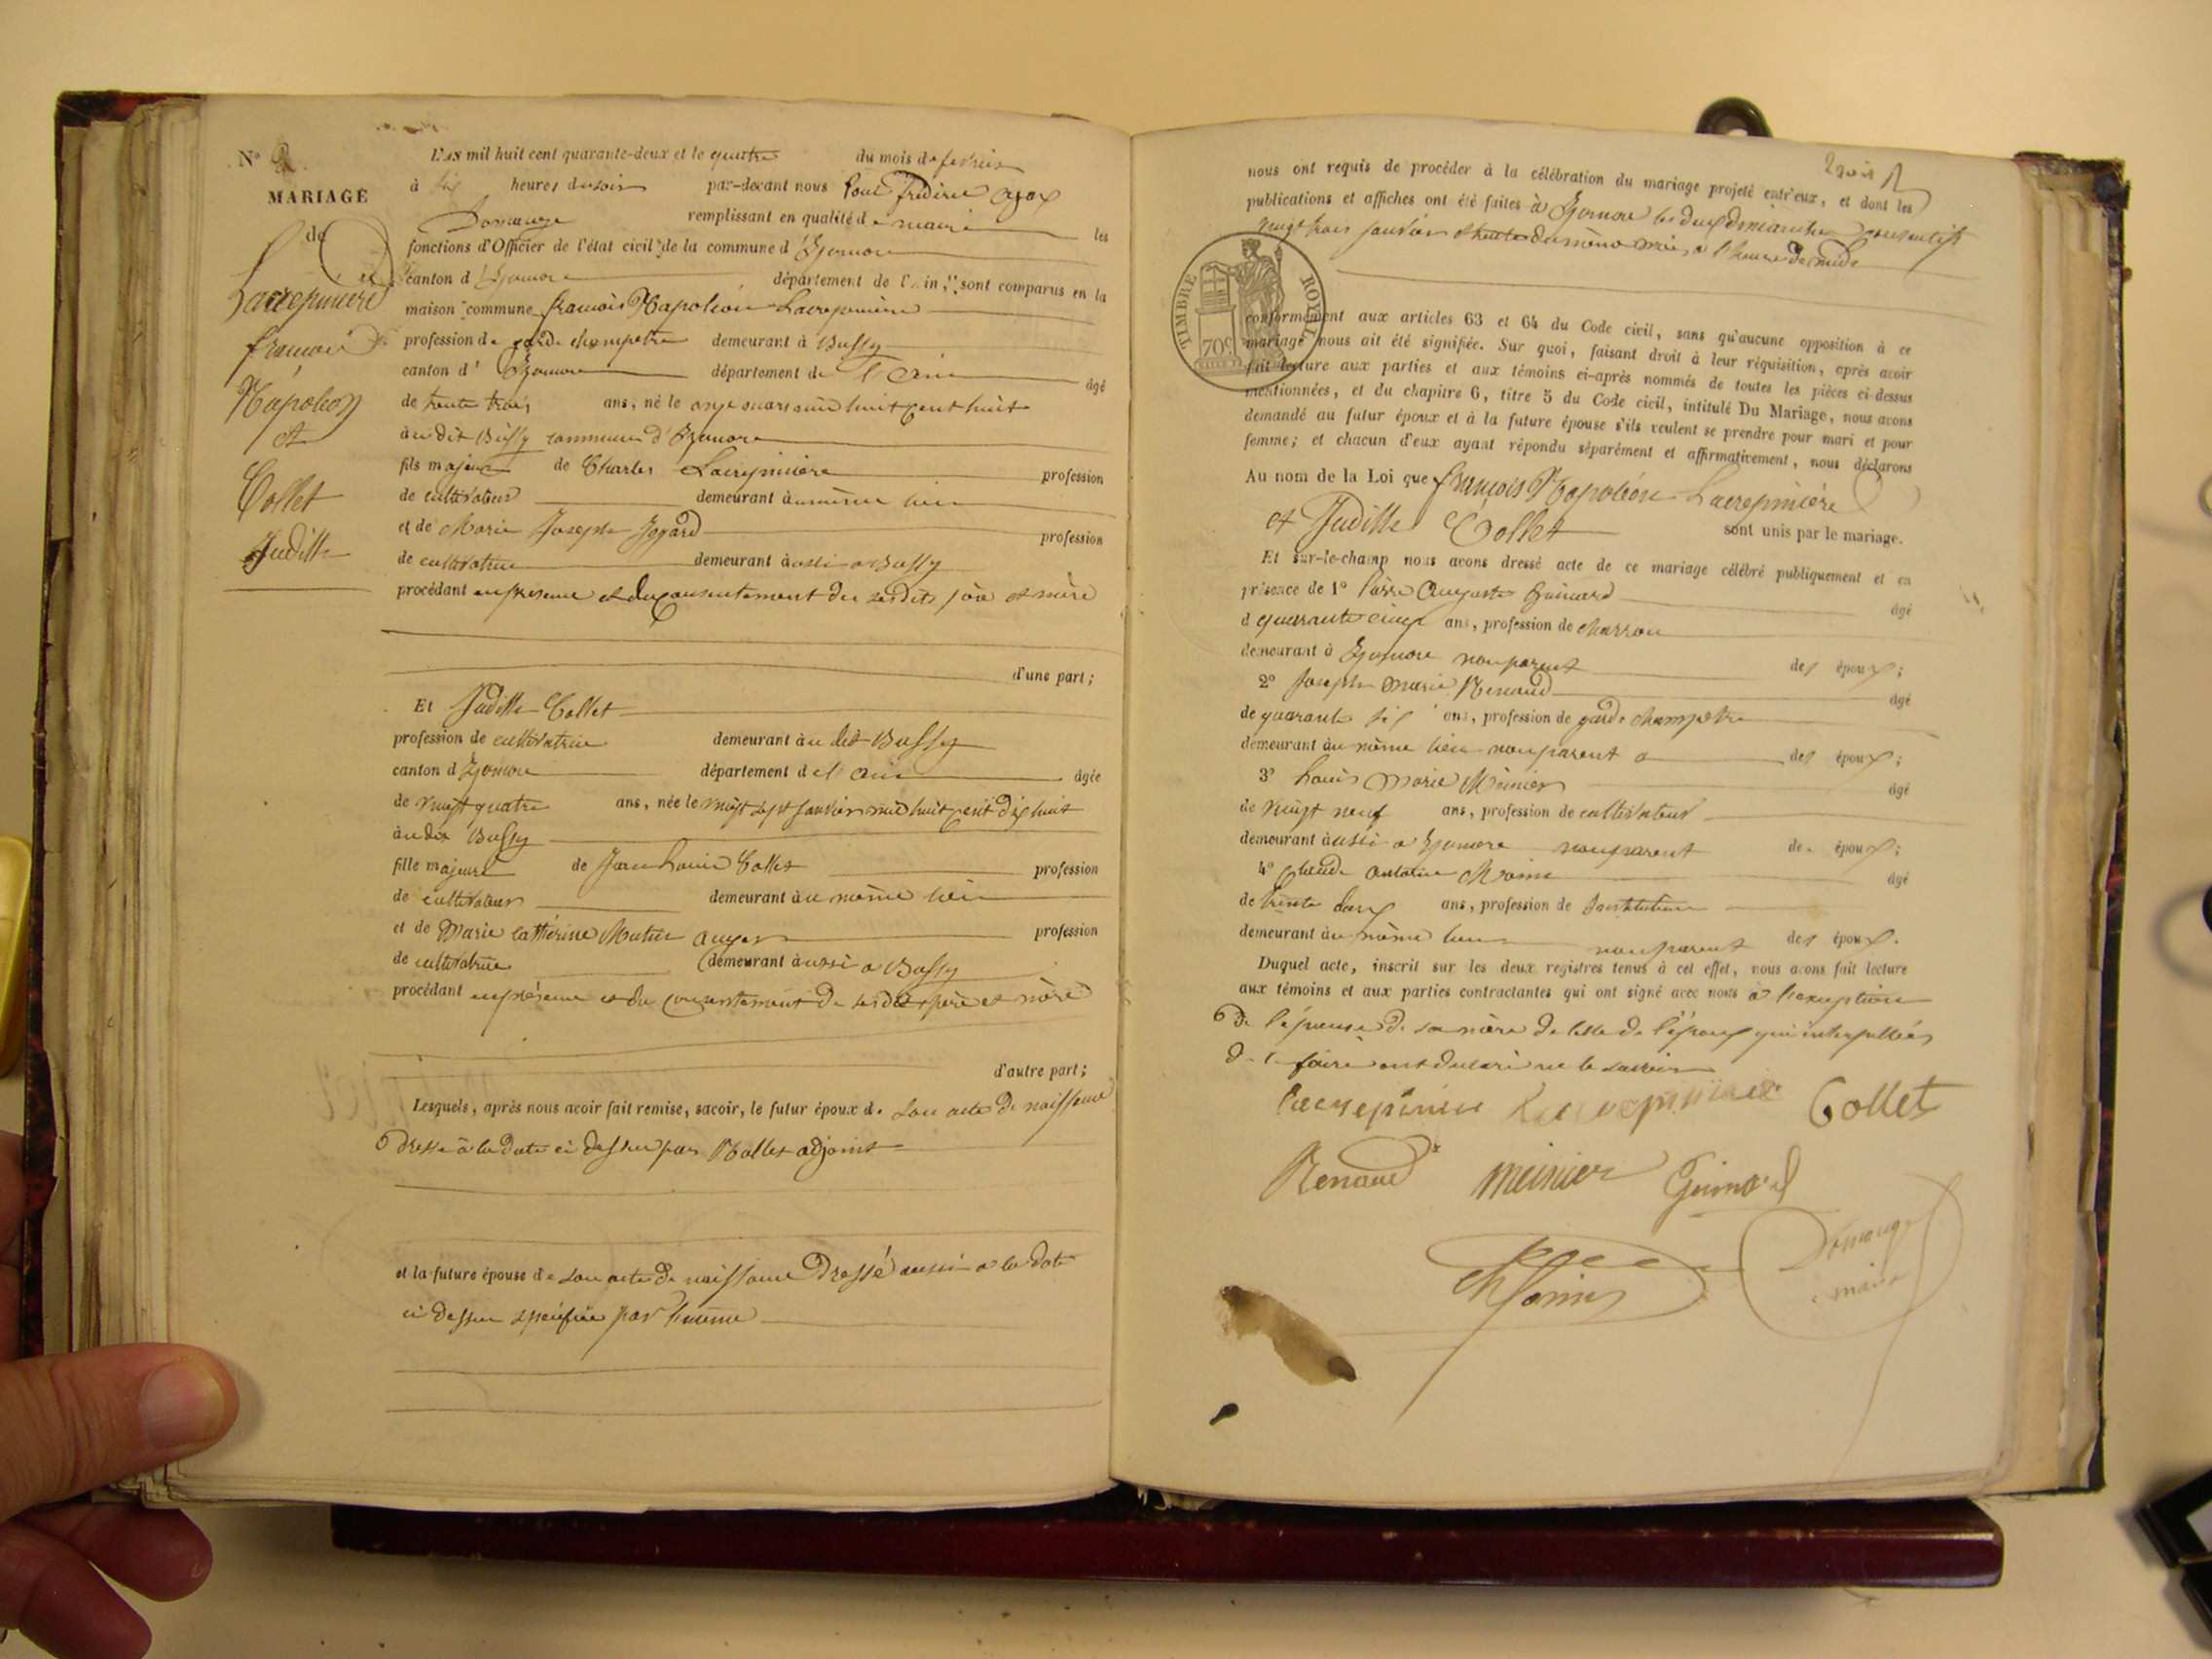 N° 2
MARIAGE
de
Lacrepinière
françois
Napoléon
et
Collet
Juditte
L'AN mil huit cent quarante-deux et le quatre du mois de fevrier
à six heures du soir par-devant nous Louis frédéric ajax
Domange remplissant en qualité de maire les
fonctions d'Officier de l'état civil de la commune d'Izernore
canton d'Izernore département de l'Ain, sont comparus en la
maison commune françois Napoléon Lacrepinière
profession de garde champetre demeurant à Bussy
canton d'Izernore département de l'Ain âgé
de trente trois ans, né le onze mars mil huit cent huit
audit Bussy commune d'Izernore
fils majeur de Charles Lacrepinière profession
de cultivateur demeurant au même lieu
et de Marie Joseph profession
de cultivatrice demeurant aussi a Bussy
procédant en présence et du consentement de ses dits père et mère
d'une part;
Et Juditte Collet
profession de cultivatrice demeurant au dit Bussy
canton d'Izernore département de l'Ain âgée
de vingt quatre ans, née le vingt sept janvier mil huit cent dix huit
au dit Bussy
fille majeure de Jean Louis Collet profession
de cultivateur demeurant au même lieu
et de Marie cathérine profession
de cultivatrice demeurant aussi a Bussy
procédant en présence et du consentement de ses dits père et mère
d'autre part;
Lesquels, après nous avoir fait remise, savoir, le futur époux de son acte de naissance
dressé à la date ci dessus par Nallet adjoint
et la future épouse de son acte de naissance dressé aussi a la date
ci dessus spécifiée par
nous ont requis de procéder à la célébration du mariage projeté entr'eux, et dont les
publications et affiches ont été faites à Izernore les deux dimanches consecutifs
vingt trois janvier et trente du même mois, a l'heure de midi
TIMBRE ROYAL
70c
conformément aux articles 63 et 64 du Code civil, sans qu'aucune opposition à ce
mariage nous ait été signifiée. Sur quoi, faisant droit à leur réquisition, après avoir
fait lecture aux parties et aux témoins ci-après nommés de toutes les pièces ci-dessus
mentionnées, et du chapitre 6, titre 5 du Code civil, intitulé Du Mariage, nous avons
demandé au futur époux et à la future épouse s'ils veulent se prendre pour mari et pour
femme; et chacun d'eux ayant répondu séparément et affirmativement, nous déclarons
Au nom de la Loi que françois Napoléon Lacrepinière
et Juditte Collet sont unis par le mariage.
Et sur-le-champ nous avons dressé acte de ce mariage célébré publiquement et en
présence de 1° Auguste Guinard âgé
de quarante cinq ans, profession de charron
demeurant à Izernore non parent des époux;
2° Joseph Marie Renaud âgé
de quarante six ans, profession de garde champetre
demeurant au même lieu non parent des époux;
3° Louis Marie Meunier âgé
de vingt neuf ans, profession de cultivateur
demeurant aussi a Izernore non parent des époux;
4° Claude antoine âgé
de trente deux ans, profession de Instituteur
demeurant au même lieu non parent des époux.
Duquel acte, inscrit sur les deux registres tenus à cet effet, nous avons fait lecture
aux témoins et aux parties contractantes qui ont signé avec nous à l'exception
de l'épouse de sa mère de celle de l'époux qui interpellées
de le faire ont declaré ne le savoir
Lacrepinière Lacrepinière Collet
Renaud meunier Guinard
Domange
maire